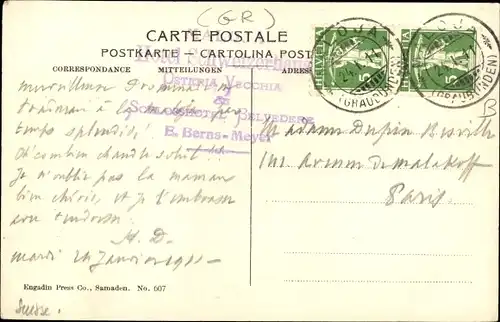 (GR)
CARTE POSTALE
POSTKARTE – CARTOLINA POSTALE
CORRESPONDANCE MITTEILUNGEN ADRESSE
HELVETIA 5
HELVETIA 5
(GRAUBÜNDEN)
(GRAUBÜNDEN)
Hotel Schweizerhaus
Osteria Vecchia
&
Schlosshotel Belvedere
E. Berns-Meyer
B
temps splendide!
chaud soleil!
Je n'oublie pas la maman
bien chérie, et je l'embrasse
A. D.
mardi 24 Janvier 1911
Madame Dupin
Avenue de Malakoff
Paris.
Engadin Press Co., Samaden. No. 607
Suisse.